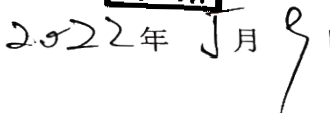 2022年5月9